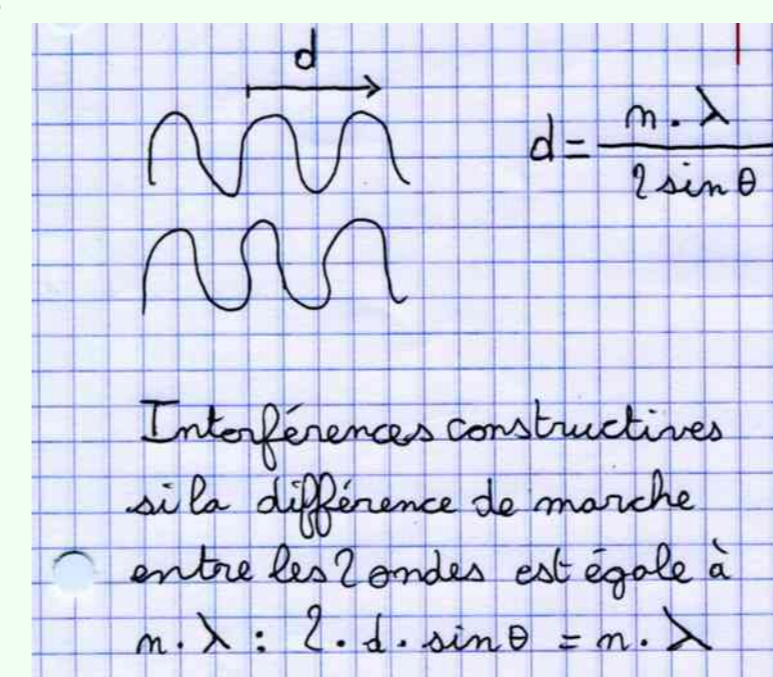 d
d = n . λ / 2 sin θ
Interférences constructives
si la différence de marche
entre les 2 ondes est égale à
n . λ : 2 . d . sin θ = n . λ